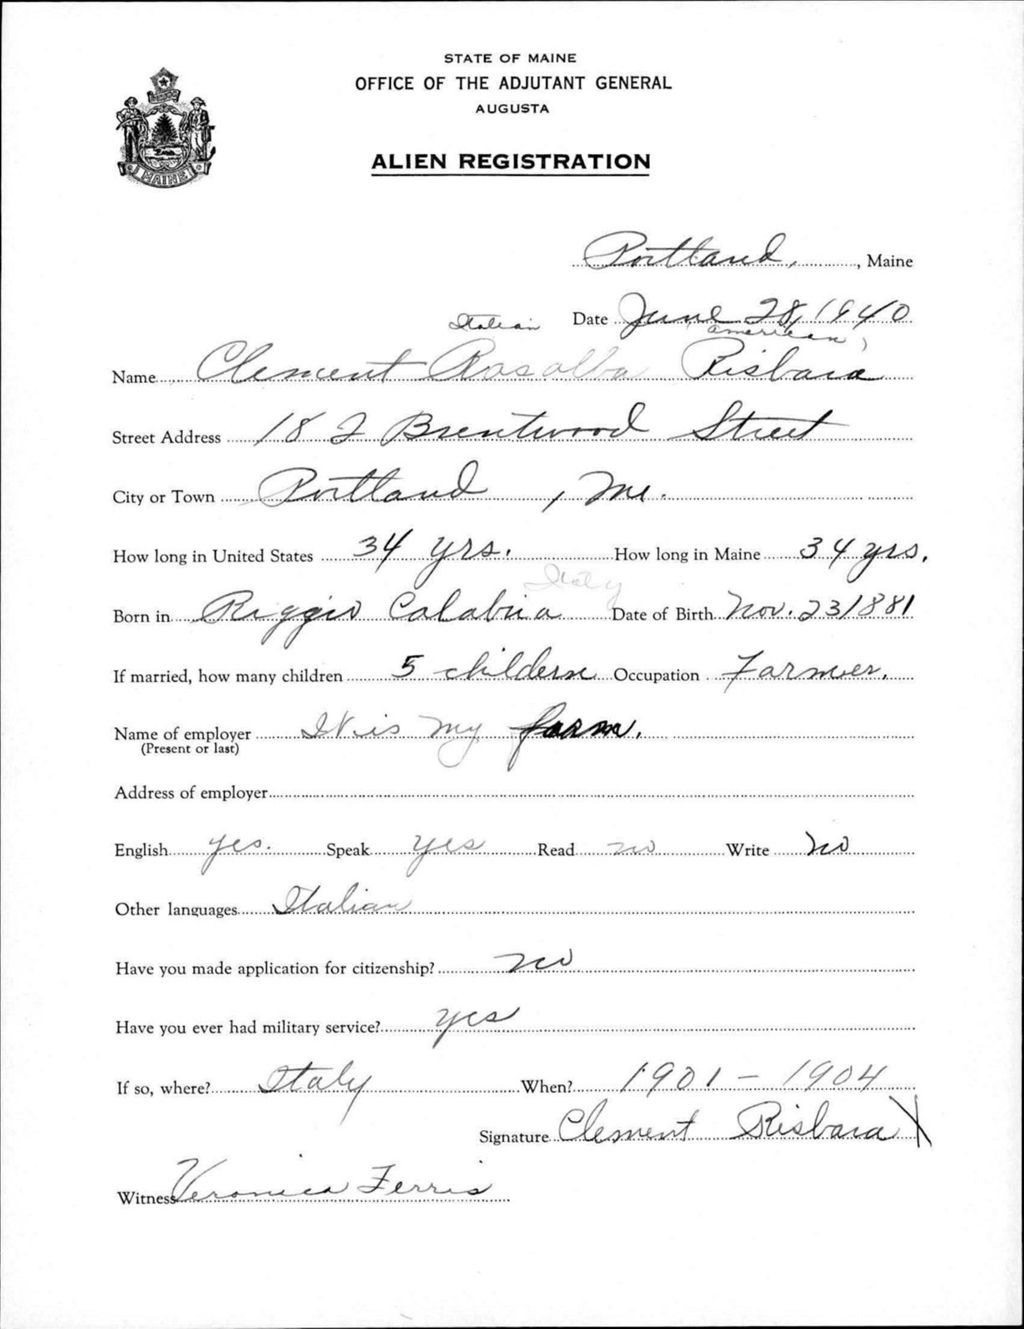 STATE OF MAINE
OFFICE OF THE ADJUTANT GENERAL
AUGUSTA
ALIEN REGISTRATION
MAINE
Portland, , Maine
Date June 28, 1940
Italian american)
Name Clement Rosalba Risbara
Street Address 182 Brentwood Street
City or Town Portland , Me.
How long in United States 34 yrs. How long in Maine 34 yrs.
Italy
Born in Riggio Calabria Date of Birth Nov. 23/881
If married, how many children 5 childern Occupation Farmer.
Name of employer It is my farm.
(Present or last)
Address of employer
English yes. Speak yes Read no Write no
Other languages Italian
Have you made application for citizenship? no
Have you ever had military service? yes
If so, where? Italy When? 1901 - 1904
Signature Clement Risbara X
Witness Veronica Ferris